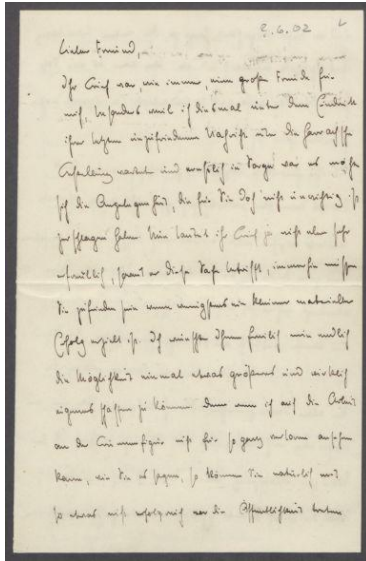 2.6.02
Lieber Freund,
Ihr Brief war, wie immer, eine große Freude für
mich, besonders weil ich diesmal unter dem Eindruck
Ihrer letzten unzufriedenen Nachricht über die
wartete und in Sorgen war es möchte
sich die Angelegenheit, die für Sie doch nicht unwichtig ist
zerschlagen haben. Nun lautet Ihr Brief ja nicht eben sehr
erfreulich, soweit er diese Sache betrifft, immerhin müssen
Sie zufrieden sein wenn wenigstens ein kleiner materieller
Erfolg erzielt ist. Ich wünschte Ihnen freilich nun endlich
die Möglichkeit einmal etwas größeres und wirklich
eigenes schaffen zu können. Denn wenn ich auch die Arbeit
an der nicht für so ganz verloren ansehen
kann, wie Sie es sagen, so können Sie natürlich mit
so etwas nicht erfolgreich vor die Öffentlichkeit treten